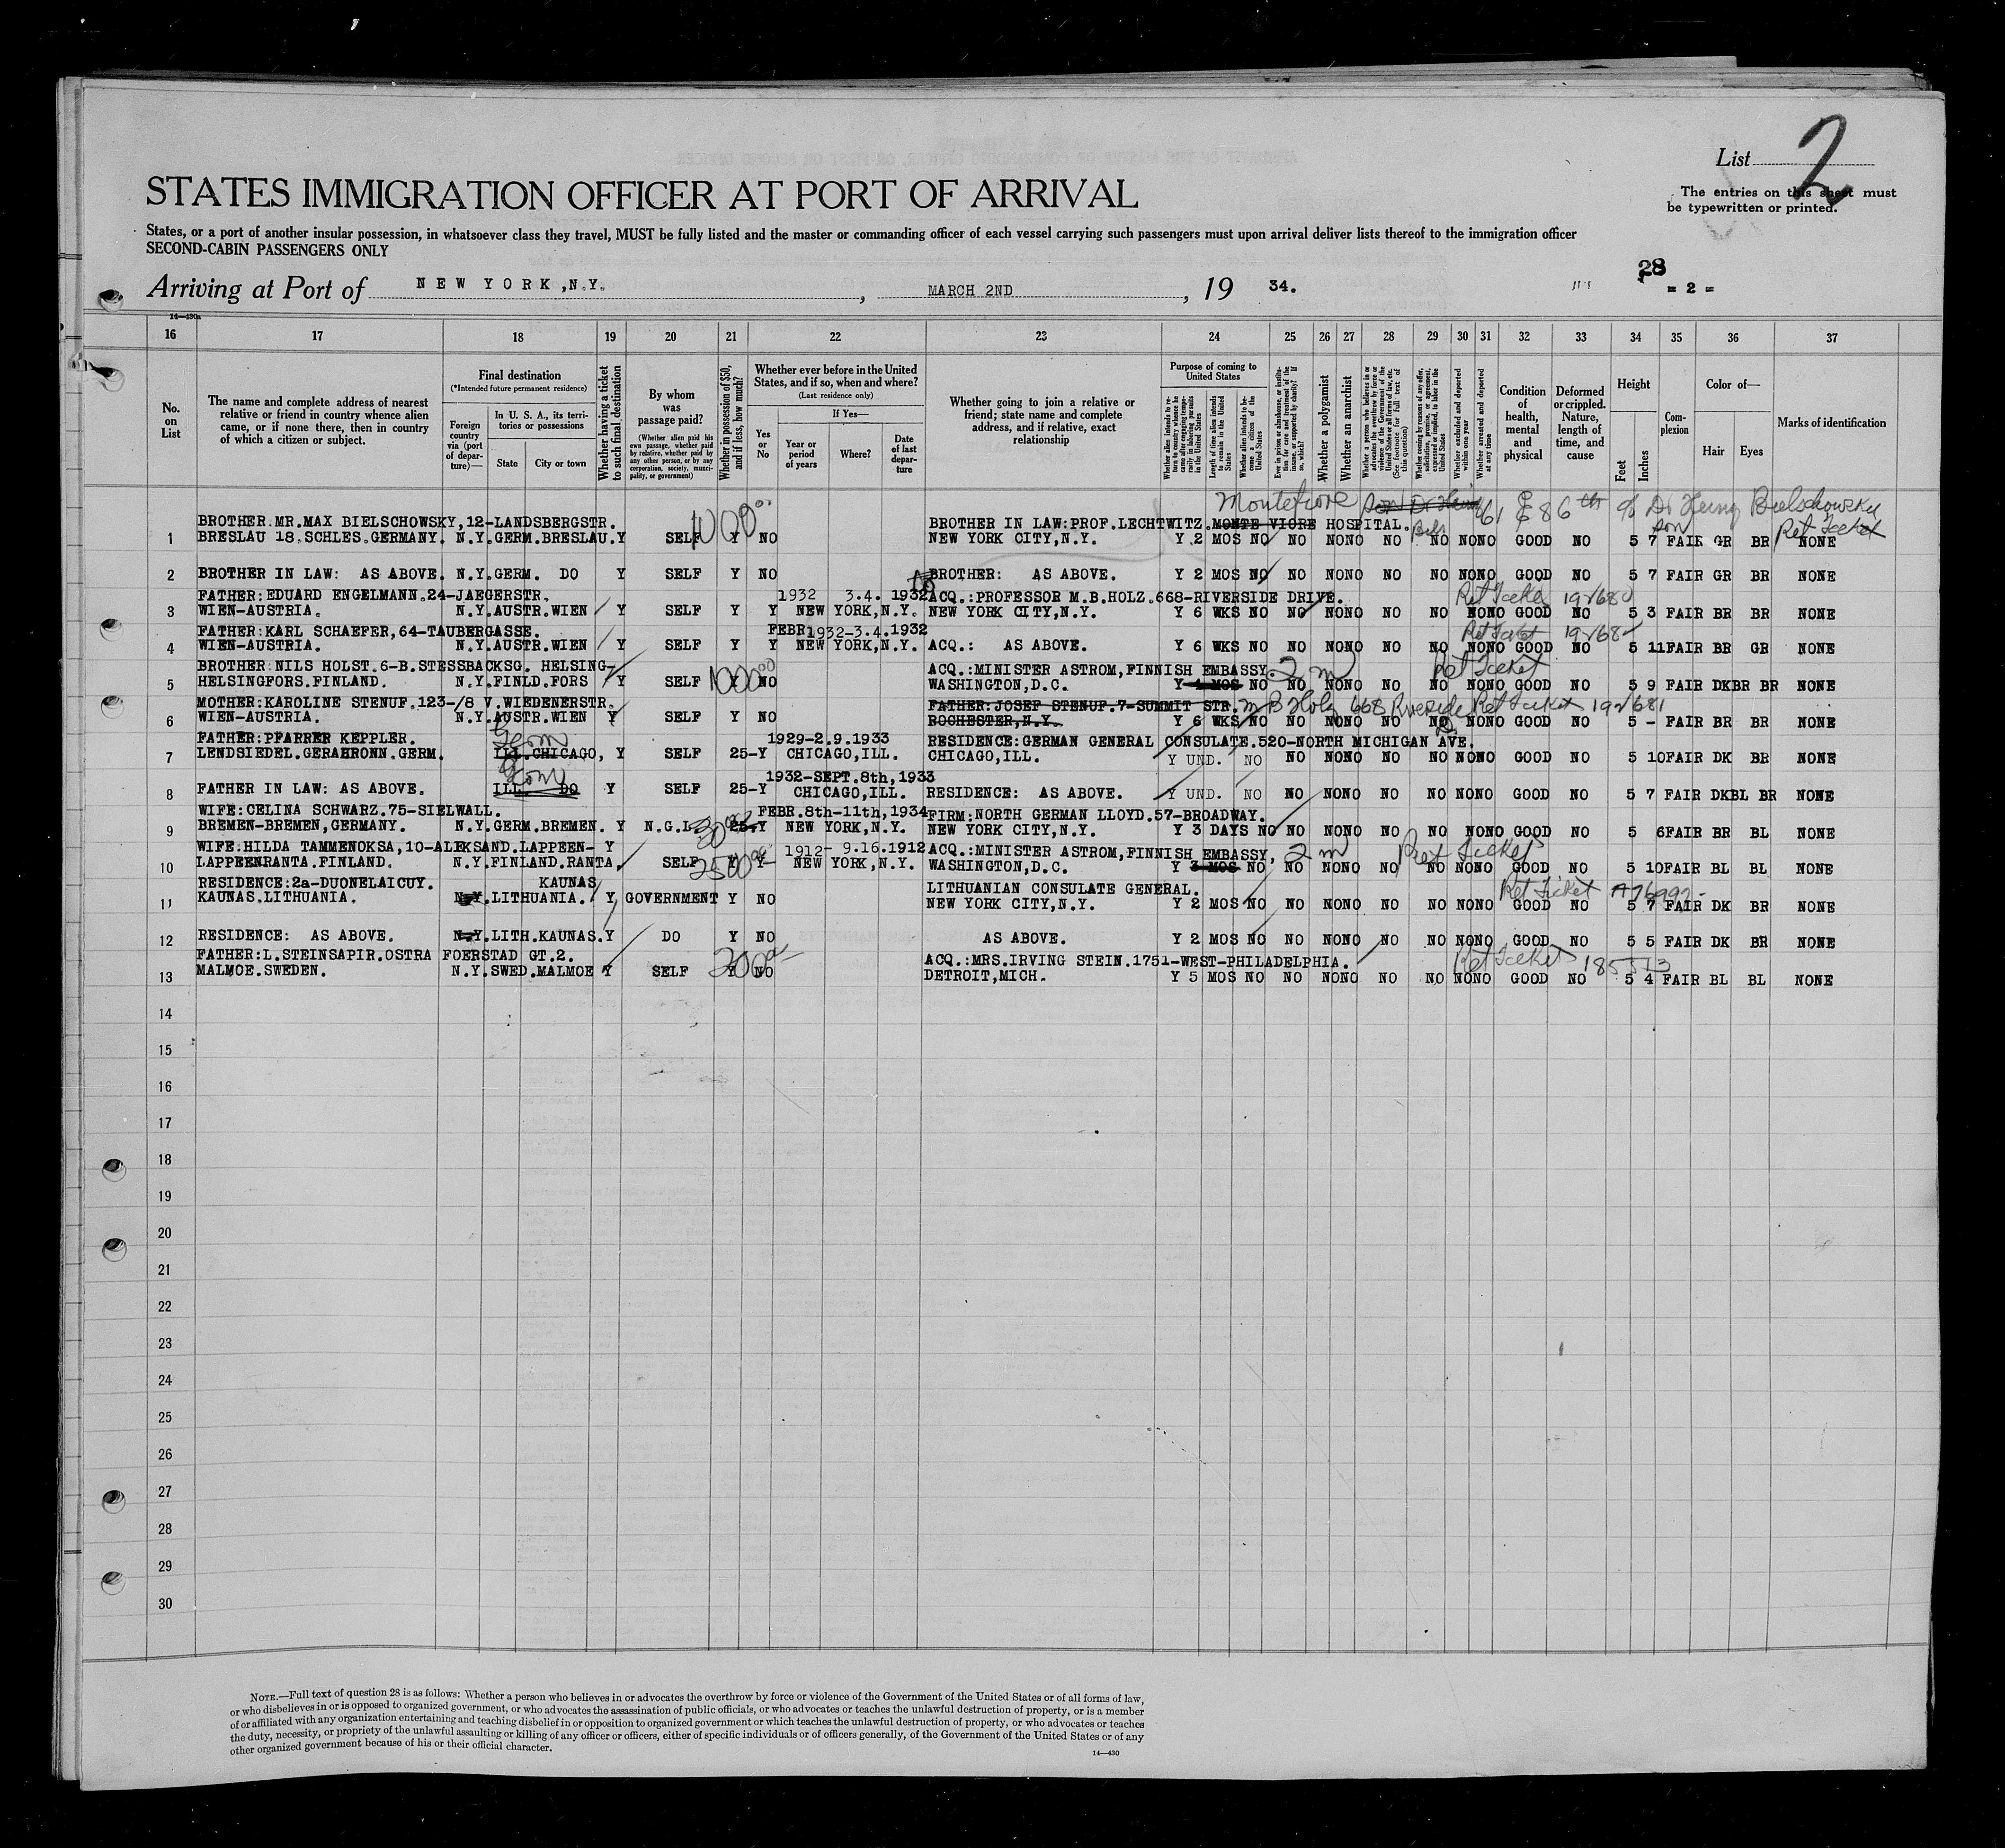 List 2
The entries on this sheet must
be typewritten or printed.
STATES IMMIGRATION OFFICER AT PORT OF ARRIVAL
States, or a port of another insular possession, in whatsoever class they travel, MUST be fully listed and the master or commanding officer of each vessel carrying such passengers must upon arrival deliver lists thereof to the immigration officer
SECOND-CABIN PASSENGERS ONLY
28
Arriving at Port of NEW YORK,N.Y. , MARCH 2ND , 19 34. = 2 =
14—430a
16 17 18 19 20 21 22 23 24 25 26 27 28 29 30 31 32 33 34 35 36 37
No. on List
The name and complete address of nearest relative or friend in country whence alien came, or if none there, then in country of which a citizen or subject.
Final destination
(*Intended future permanent residence)
Foreign country via (port of departure)—
In U. S. A., its territories or possessions
State
City or town
Whether having a ticket to such final destination
By whom was passage paid?
(Whether alien paid his own passage, whether paid by relative, whether paid by any other person, or by any corporation, society, municipality, or government)
Whether in possession of $50, and if less, how much?
Whether ever before in the United States, and if so, when and where?
(Last residence only)
Yes or No
If Yes—
Year or period of years
Where?
Date of last departure
Whether going to join a relative or friend; state name and complete address, and if relative, exact relationship
Purpose of coming to United States
Whether alien intends to return to country whence he came after engaging temporarily in laboring pursuits in the United States
Length of time alien intends to remain in the United States
Whether alien intends to become a citizen of the United States
Ever in prison or almshouse, or institution for care and treatment of the insane, or supported by charity? If so, which?
Whether a polygamist
Whether an anarchist
Whether a person who believes in or advocates the overthrow by force or violence of the Government of the United States or all forms of law, etc. (See footnote for full text of this question)
Whether coming by reasons of any offer, solicitation, promise or agreement, expressed or implied, to labor in the United States
Whether excluded and deported within one year
Whether arrested and deported at any time
Condition of health, mental and physical
Deformed or crippled. Nature, length of time, and cause
Height
Feet
Inches
Complexion
Color of—
Hair
Eyes
Marks of identification
Montefiore 61 E 86th c/o Dr Bielschowsky
son
BROTHER:MR.MAX BIELSCHOWSKY,12-LANDSBERGSTR. 1000.00 BROTHER IN LAW:PROF.LECHTWITZ.MONTE VIORE HOSPITAL. Ret Ticket
1 BRESLAU 18.SCHLES.GERMANY. N.Y.GERM.BRESLAU.Y SELF Y NO NEW YORK CITY,N.Y. Y 2 MOS NO NO NONO NO NO NONO GOOD NO 5 7 FAIR GR BR NONE
2 BROTHER IN LAW: AS ABOVE. N.Y.GERM. DO Y SELF Y NO BROTHER: AS ABOVE. Y 2 MOS NO NO NONO NO NO NONO GOOD NO 5 7 FAIR GR BR NONE
FATHER:EDUARD ENGELMANN.24-JAEGERSTR. 1932 3.4. 1932 ACQ.:PROFESSOR M.B.HOLZ.668-RIVERSIDE DRIVE. Ret Ticket
3 WIEN-AUSTRIA. N.Y.AUSTR.WIEN Y SELF Y Y NEW YORK,N.Y. NEW YORK CITY,N.Y. Y 6 WKS NO NO NONO NO NO NONO GOOD NO 5 3 FAIR BR BR NONE
FATHER:KARL SCHAEFER,64-TAUBERGASSE. FEBR 1932-3.4.1932 Ret Ticket
4 WIEN-AUSTRIA. N.Y.AUSTR.WIEN Y SELF Y Y NEW YORK,N.Y. ACQ.: AS ABOVE. Y 6 WKS NO NO NONO NO NO NONO GOOD NO 5 11 FAIR BR GR NONE
BROTHER:NILS HOLST.6-B.STESSBACKSG. HELSING- 1000.00 ACQ.:MINISTER ASTROM,FINNISH EMBASSY. 2 m Ret Ticket
5 HELSINGFORS.FINLAND. N.Y.FINLD.FORS Y SELF Y NO WASHINGTON,D.C. Y 4 MOS NO NO NONO NO NO NONO GOOD NO 5 9 FAIR DKBR BR NONE
MOTHER:KAROLINE STENUF.123-/8 V.WIEDENERSTR. FATHER:JOSEF STENUF.7-SUMMIT STR. M B Holz 668 Riverside Ret Ticket 192681
6 WIEN-AUSTRIA. N.Y.AUSTR.WIEN Y SELF Y NO ROCHESTER,N.Y. Y 6 WKS NO NO NONO NO NO NONO GOOD NO 5 - FAIR BR BR NONE
FATHER:PFARRER KEPPLER. Germ 1929-2.9.1933 RESIDENCE:GERMAN GENERAL CONSULATE.520-NORTH MICHIGAN AVE.
7 LENDSIEDEL.GERABRONN.GERM. ILL.CHICAGO, Y SELF 25-Y CHICAGO,ILL. CHICAGO,ILL. Y UND. NO NO NONO NO NO NONO GOOD NO 5 10 FAIR DK BR NONE
Germ 1932-SEPT.8th,1933
8 FATHER IN LAW: AS ABOVE. ILL. DO Y SELF 25-Y CHICAGO,ILL. RESIDENCE: AS ABOVE. Y UND. NO NO NONO NO NO NONO GOOD NO 5 7 FAIR DKBL BR NONE
WIFE:CELINA SCHWARZ.75-SIELWALL. FEBR.8th-11th,1934 FIRM:NORTH GERMAN LLOYD.57-BROADWAY.
9 BREMEN-BREMEN,GERMANY. N.Y.GERM.BREMEN. Y N.G.L. 30 25-Y NEW YORK,N.Y. NEW YORK CITY,N.Y. Y 3 DAYS NO NO NONO NO NO NONO GOOD NO 5 6 FAIR BR BL NONE
WIFE:HILDA TAMMENOKSA,10-ALEKSAND.LAPPEEN- Y 1912- 9.16.1912 ACQ.:MINISTER ASTROM,FINNISH EMBASSY, 2 m Ret Ticket
10 LAPPEENRANTA.FINLAND. N.Y.FINLAND.RANTA. SELF 2500.00 Y Y- NEW YORK,N.Y. WASHINGTON,D.C. Y 3 MOS NO NO NONO NO NO NONO GOOD NO 5 10 FAIR BL BL NONE
RESIDENCE:2a-DUONELAICUY. KAUNAS LITHUANIAN CONSULATE GENERAL. Ret Ticket
11 KAUNAS.LITHUANIA. N.Y.LITHUANIA. Y GOVERNMENT Y NO NEW YORK CITY,N.Y. Y 2 MOS NO NO NONO NO NO NONO GOOD NO 5 7 FAIR DK BR NONE
12 RESIDENCE: AS ABOVE. N.Y.LITH.KAUNAS.Y DO Y NO AS ABOVE. Y 2 MOS NO NO NONO NO NO NONO GOOD NO 5 5 FAIR DK BR NONE
FATHER:L.STEINSAPIR.OSTRA FOERSTAD GT.2. ACQ.:MRS.IRVING STEIN.1751-WEST-PHILADELPHIA. Ret Ticket
13 MALMOE.SWEDEN. N.Y.SWED.MALMOE Y SELF Y NO DETROIT,MICH. Y 5 MOS NO NO NONO NO NO NONO GOOD NO 5 4 FAIR BL BL NONE
14
15
16
17
18
19
20
21
22
23
24
25
26
27
28
29
30
NOTE.—Full text of question 28 is as follows: Whether a person who believes in or advocates the overthrow by force or violence of the Government of the United States or of all forms of law,
or who disbelieves in or is opposed to organized government, or who advocates the assassination of public officials, or who advocates or teaches the unlawful destruction of property, or is a member
of or affiliated with any organization entertaining and teaching disbelief in or opposition to organized government or which teaches the unlawful destruction of property, or who advocates or teaches
the duty, necessity, or propriety of the unlawful assaulting or killing of any officer or officers, either of specific individuals or of officers generally, of the Government of the United States or of any
other organized government because of his or their official character.
14—430